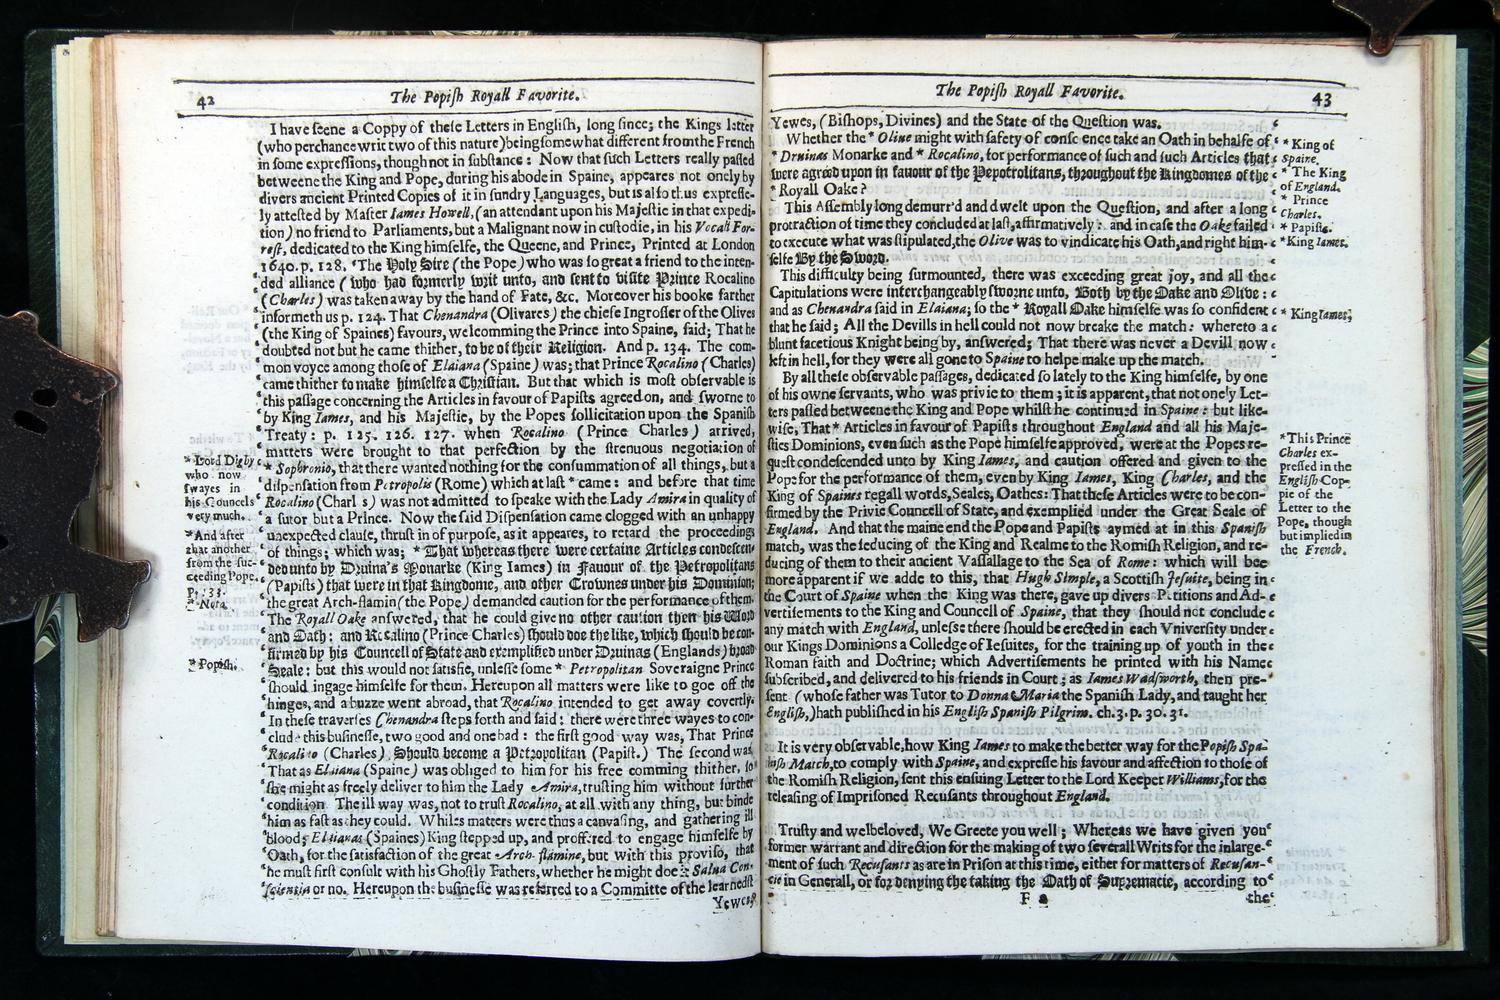 42
The Popish Royall Favorite.
I have seene a Coppy of these Letters in English, long since; the Kings letter
(who perchance writ two of this nature) being somewhat different from the French
in some expressions, though not in substance: Now that such Letters really passed
betweene the King and Pope, during his abode in Spaine, appeares not onely by
divers ancient Printed Copies of it in sundry Languages, but is also thus expresse-
ly attested by Master Iames Howell, (an attendant upon his Majestie in that expedi-
tion) no friend to Parliaments, but a Malignant now in custodie, in his Vocall For-
rest, dedicated to the King himselfe, the Queene, and Prince, Printed at London
1640. p. 128. The Holy Sire (the Pope) who was so great a friend to the inten-
ded alliance (who had formerly writ unto, and sent to visite Prince Rocalino
(Charles) was taken away by the hand of Fate, &c. Moreover his booke farther
informeth us p. 124. That Chenandra (Olivares) the chiefe Ingrosser of the Olives
(the King of Spaines) favours, welcomming the Prince into Spaine, said; That he
doubted not but he came thither, to be of their Religion. And p. 134. The com-
mon voyce among those of Elaiana (Spaine) was; that Prince Rocalino (Charles)
came thither to make himselfe a Christian. But that which is most observable is
this passage concerning the Articles in favour of Papists agreed on, and sworne to
by King Iames, and his Majestie, by the Popes sollicitation upon the Spanish
Treaty: p. 125. 126. 127. when Rocalino (Prince Charles) arrived,
matters were brought to that perfection by the strenuous negotiation of
* Sophronio, that there wanted nothing for the consummation of all things, but a
dispensation from Petropolis (Rome) which at last * came: and before that time
Rocalino (Charls) was not admitted to speake with the Lady Amira in quality of
a sutor but a Prince. Now the said Dispensation came clogged with an unhappy
unexpected clause, thrust in of purpose, as it appeares, to retard the proceedings
of things; which was; * That whereas there were certaine Articles condescen-
ded unto by Druina's Monarke (King Iames) in Favour of the Petropolitans
(Papists) that were in that Kingdome, and other Crownes under his Dominion;
the great Arch-flamin (the Pope) demanded caution for the performance of them.
The Royall Oake answered, that he could give no other caution then his Word
and Oath: and Rocalino (Prince Charles) should doe the like, which should be con-
firmed by his Councell of State and exemplified under Druinas (Englands) broad
Seale: but this would not satisfie, unlesse some * Petropolitan Soveraigne Prince
should ingage himselfe for them. Hereupon all matters were like to goe off the
hinges, and a buzze went abroad, that Rocalino intended to get away covertly.
In these traverses Chenandra steps forth and said: there were three wayes to con-
clude this businesse, two good and one bad: the first good way was, That Prince
Rocalino (Charles) Should become a Petropolitan (Papist.) The second was,
That as Elaiana (Spaine) was obliged to him for his free comming thither, so
she might as freely deliver to him the Lady Amira, trusting him without further
condition. The ill way was, not to trust Rocalino, at all with any thing, but binde
him as fast as they could. Whiles matters were thus a canvasing, and gathering ill
blood; Elaianas (Spaines) King stepped up, and proffered to engage himselfe by
Oath, for the satisfaction of the great Arch-flamine, but with this proviso, that
he must first consult with his Ghostly Fathers, whether he might doe it Salva Con-
scientia or no. Hereupon the businesse was referred to a Committe of the learnedst
Yewes,
* Lord Digby
who now
swayes in
his Councels
very much.
* And after
that another
from the suc-
ceeding Pope.
* Nota.
* Popish.
The Popish Royall Favorite.
43
Yewes, (Bishops, Divines) and the State of the Question was.
Whether the * Olive might with safety of conscience take an Oath in behalfe of
* Druinas Monarke and * Rocalino, for performance of such and such Articles that
were agreed upon in favour of the Pepotrolitans, throughout the Kingdomes of the
* Royall Oake?
This Assembly long demurr'd and dwelt upon the Question, and after a long
protraction of time they concluded at last, affirmatively: and in case the Oake failed
to execute what was stipulated, the Olive was to vindicate his Oath, and right him-
selfe By the Sword.
This difficulty being surmounted, there was exceeding great joy, and all the
Capitulations were interchangeably sworne unto, Both by the Oake and Olive:
and as Chenandra said in Elaiana; so the * Royall Oake himselfe was so confident
that he said; All the Devills in hell could not now breake the match: whereto a
blunt facetious Knight being by, answered; That there was never a Devill now
left in hell, for they were all gone to Spaine to helpe make up the match.
By all these observable passages, dedicated so lately to the King himselfe, by one
of his owne servants, who was privie to them; it is apparent, that not onely Let-
ters passed betweene the King and Pope whilst he continued in Spaine: but like-
wise, That * Articles in favour of Papists throughout England and all his Maje-
sties Dominions, even such as the Pope himselfe approved, were at the Popes re-
quest condescended unto by King Iames, and caution offered and given to the
Pope for the performance of them, even by King Iames, King Charles, and the
King of Spaines regall words, Seales, Oathes: That these Articles were to be con-
firmed by the Privie Councell of State, and exemplied under the Great Seale of
England. And that the maine end the Pope and Papists aymed at in this Spanish
match, was the seducing of the King and Realme to the Romish Religion, and re-
ducing of them to their ancient Vassallage to the Sea of Rome: which will bee
more apparent if we adde to this, that Hugh Simple, a Scottish Jesuite, being in
the Court of Spaine when the King was there, gave up divers Petitions and Ad-
vertisements to the King and Councell of Spaine, that they should not conclude
any match with England, unlesse there should be erected in each Vniversity under
our Kings Dominions a Colledge of Iesuites, for the training up of youth in the
Roman faith and Doctrine; which Advertisements he printed with his Name
subscribed, and delivered to his friends in Court; as Iames Wadsworth, then pre-
sent (whose father was Tutor to Donna Maria the Spanish Lady, and taught her
English,) hath published in his English Spanish Pilgrim. ch. 3. p. 30. 31.
It is very observable, how King Iames to make the better way for the Popish Spa-
nish Match, to comply with Spaine, and expresse his favour and affection to those of
the Romish Religion, sent this ensuing Letter to the Lord Keeper Williams, for the
releasing of Imprisoned Recusants throughout England.
Trusty and welbeloved, We Greete you well; Whereas we have given you
former warrant and direction for the making of two severall Writs for the inlarge-
ment of such Recusants as are in Prison at this time, either for matters of Recusan-
cie in Generall, or for denying the taking the Oath of Supremacie, according to
F
the
* King of
Spaine.
* The King
of England.
* Prince
Charles.
* Papists.
* King Iames.
* King Iames.
* This Prince
Charles ex-
pressed in the
English Cop-
pie of the
Letter to the
Pope, though
but implied in
the French.